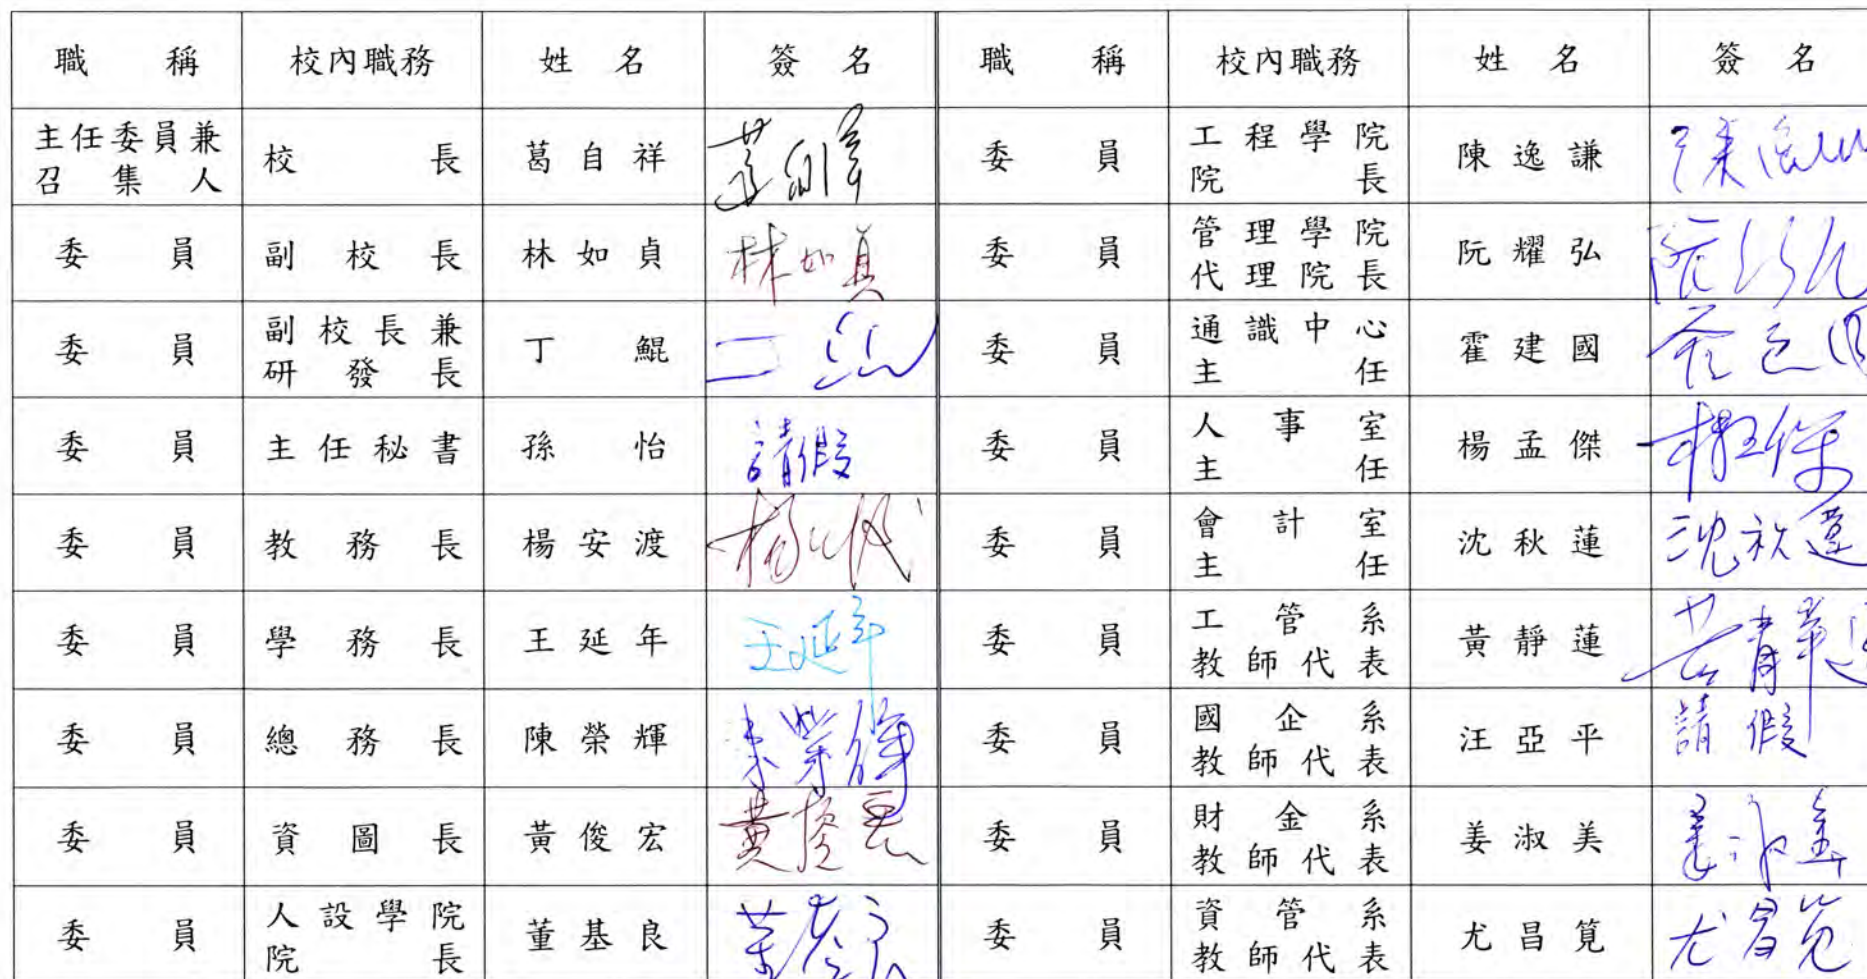 職稱 校內職務 姓名 簽名 職稱 校內職務 姓名 簽名
主任委員兼召集人 校長 葛自祥 委員 工程學院院長 陳逸謙
委員 副校長 林如貞 林如貞 委員 管理學院代理院長 阮耀弘
委員 副校長兼研發長 丁鯤 委員 通識中心主任 霍建國
委員 主任秘書 孫怡 請假 委員 人事室主任 楊孟傑
委員 教務長 楊安渡 委員 會計室主任 沈秋蓮 沈秋蓮
委員 學務長 王延年 王延年 委員 工管系教師代表 黃靜蓮
委員 總務長 陳榮輝 委員 國企系教師代表 汪亞平 請假
委員 資圖長 黃俊宏 委員 財金系教師代表 姜淑美
委員 人設學院院長 董基良 委員 資管系教師代表 尤昌筧